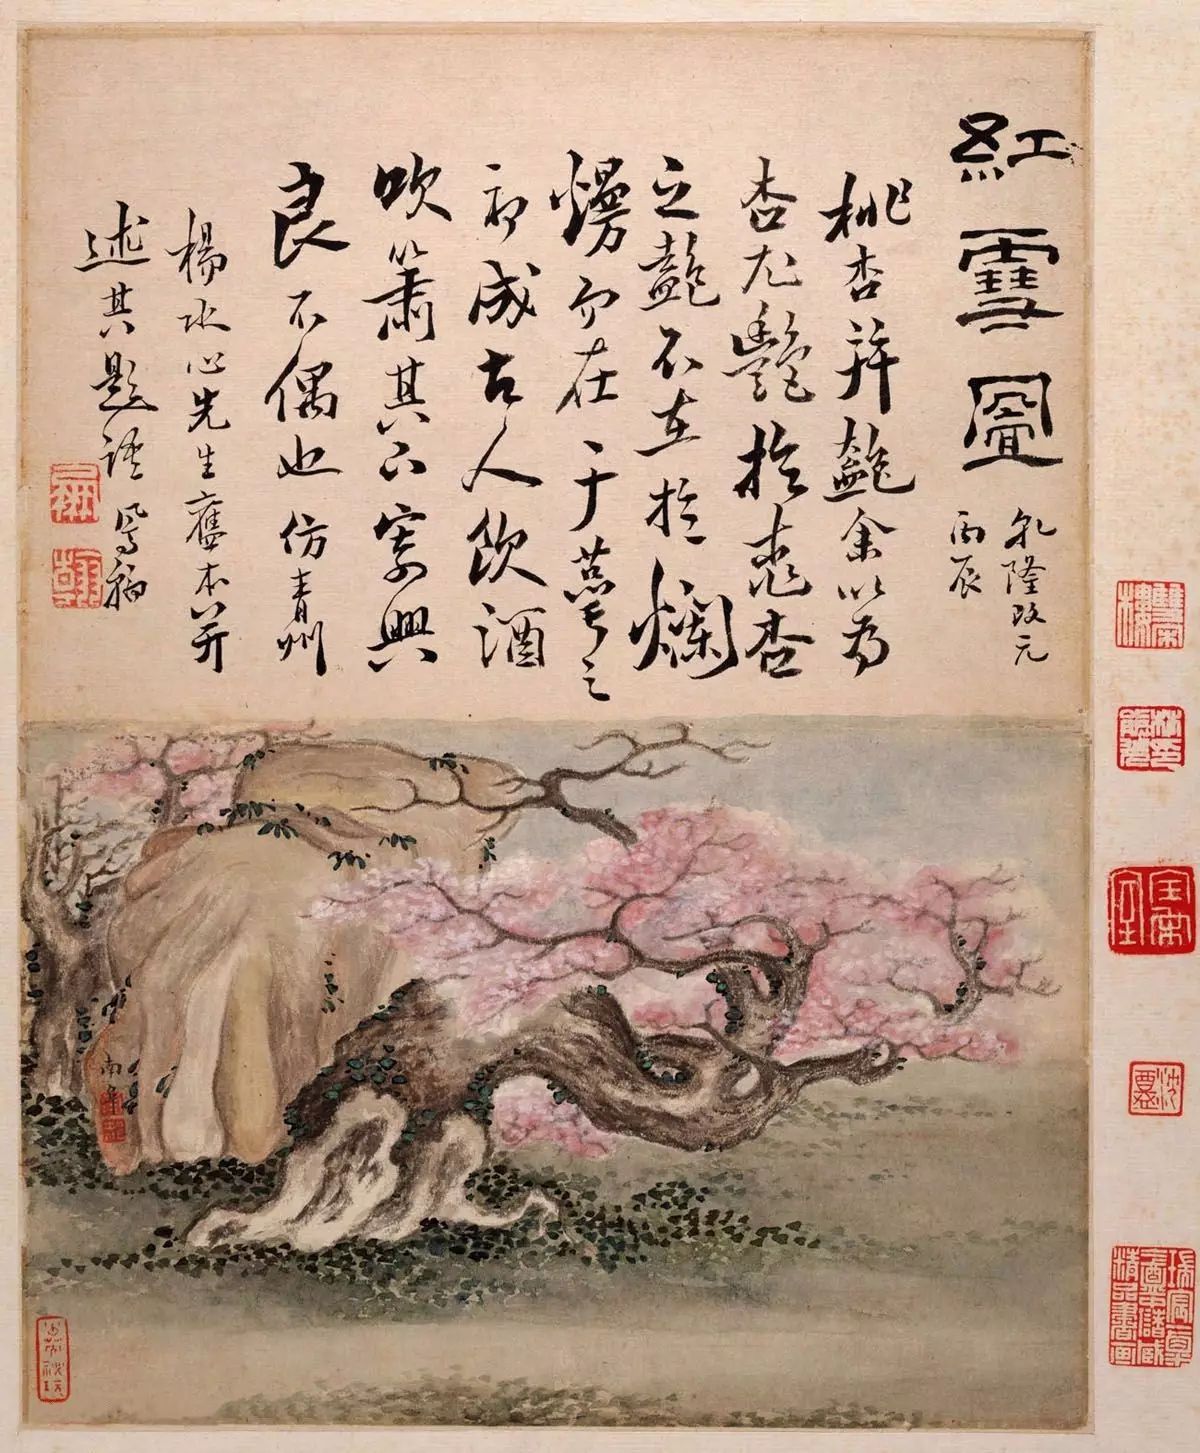 紅雪圖
乾隆改元
丙辰
桃杏并艷余以為
杏尤艷於桃杏
之艷不在於爛
熳而在于之
初成古人飲酒
吹簫其寄興
良不偶也仿青州
楊水心先生舊本并
述其題語鳳翰
南阜